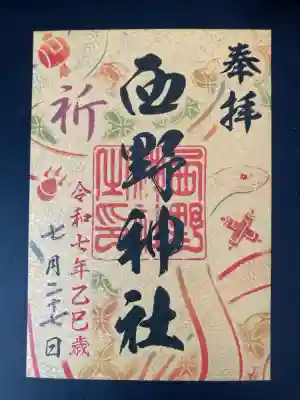 奉拝
西野神社
祈
令和七年乙巳歳
七月二十七日